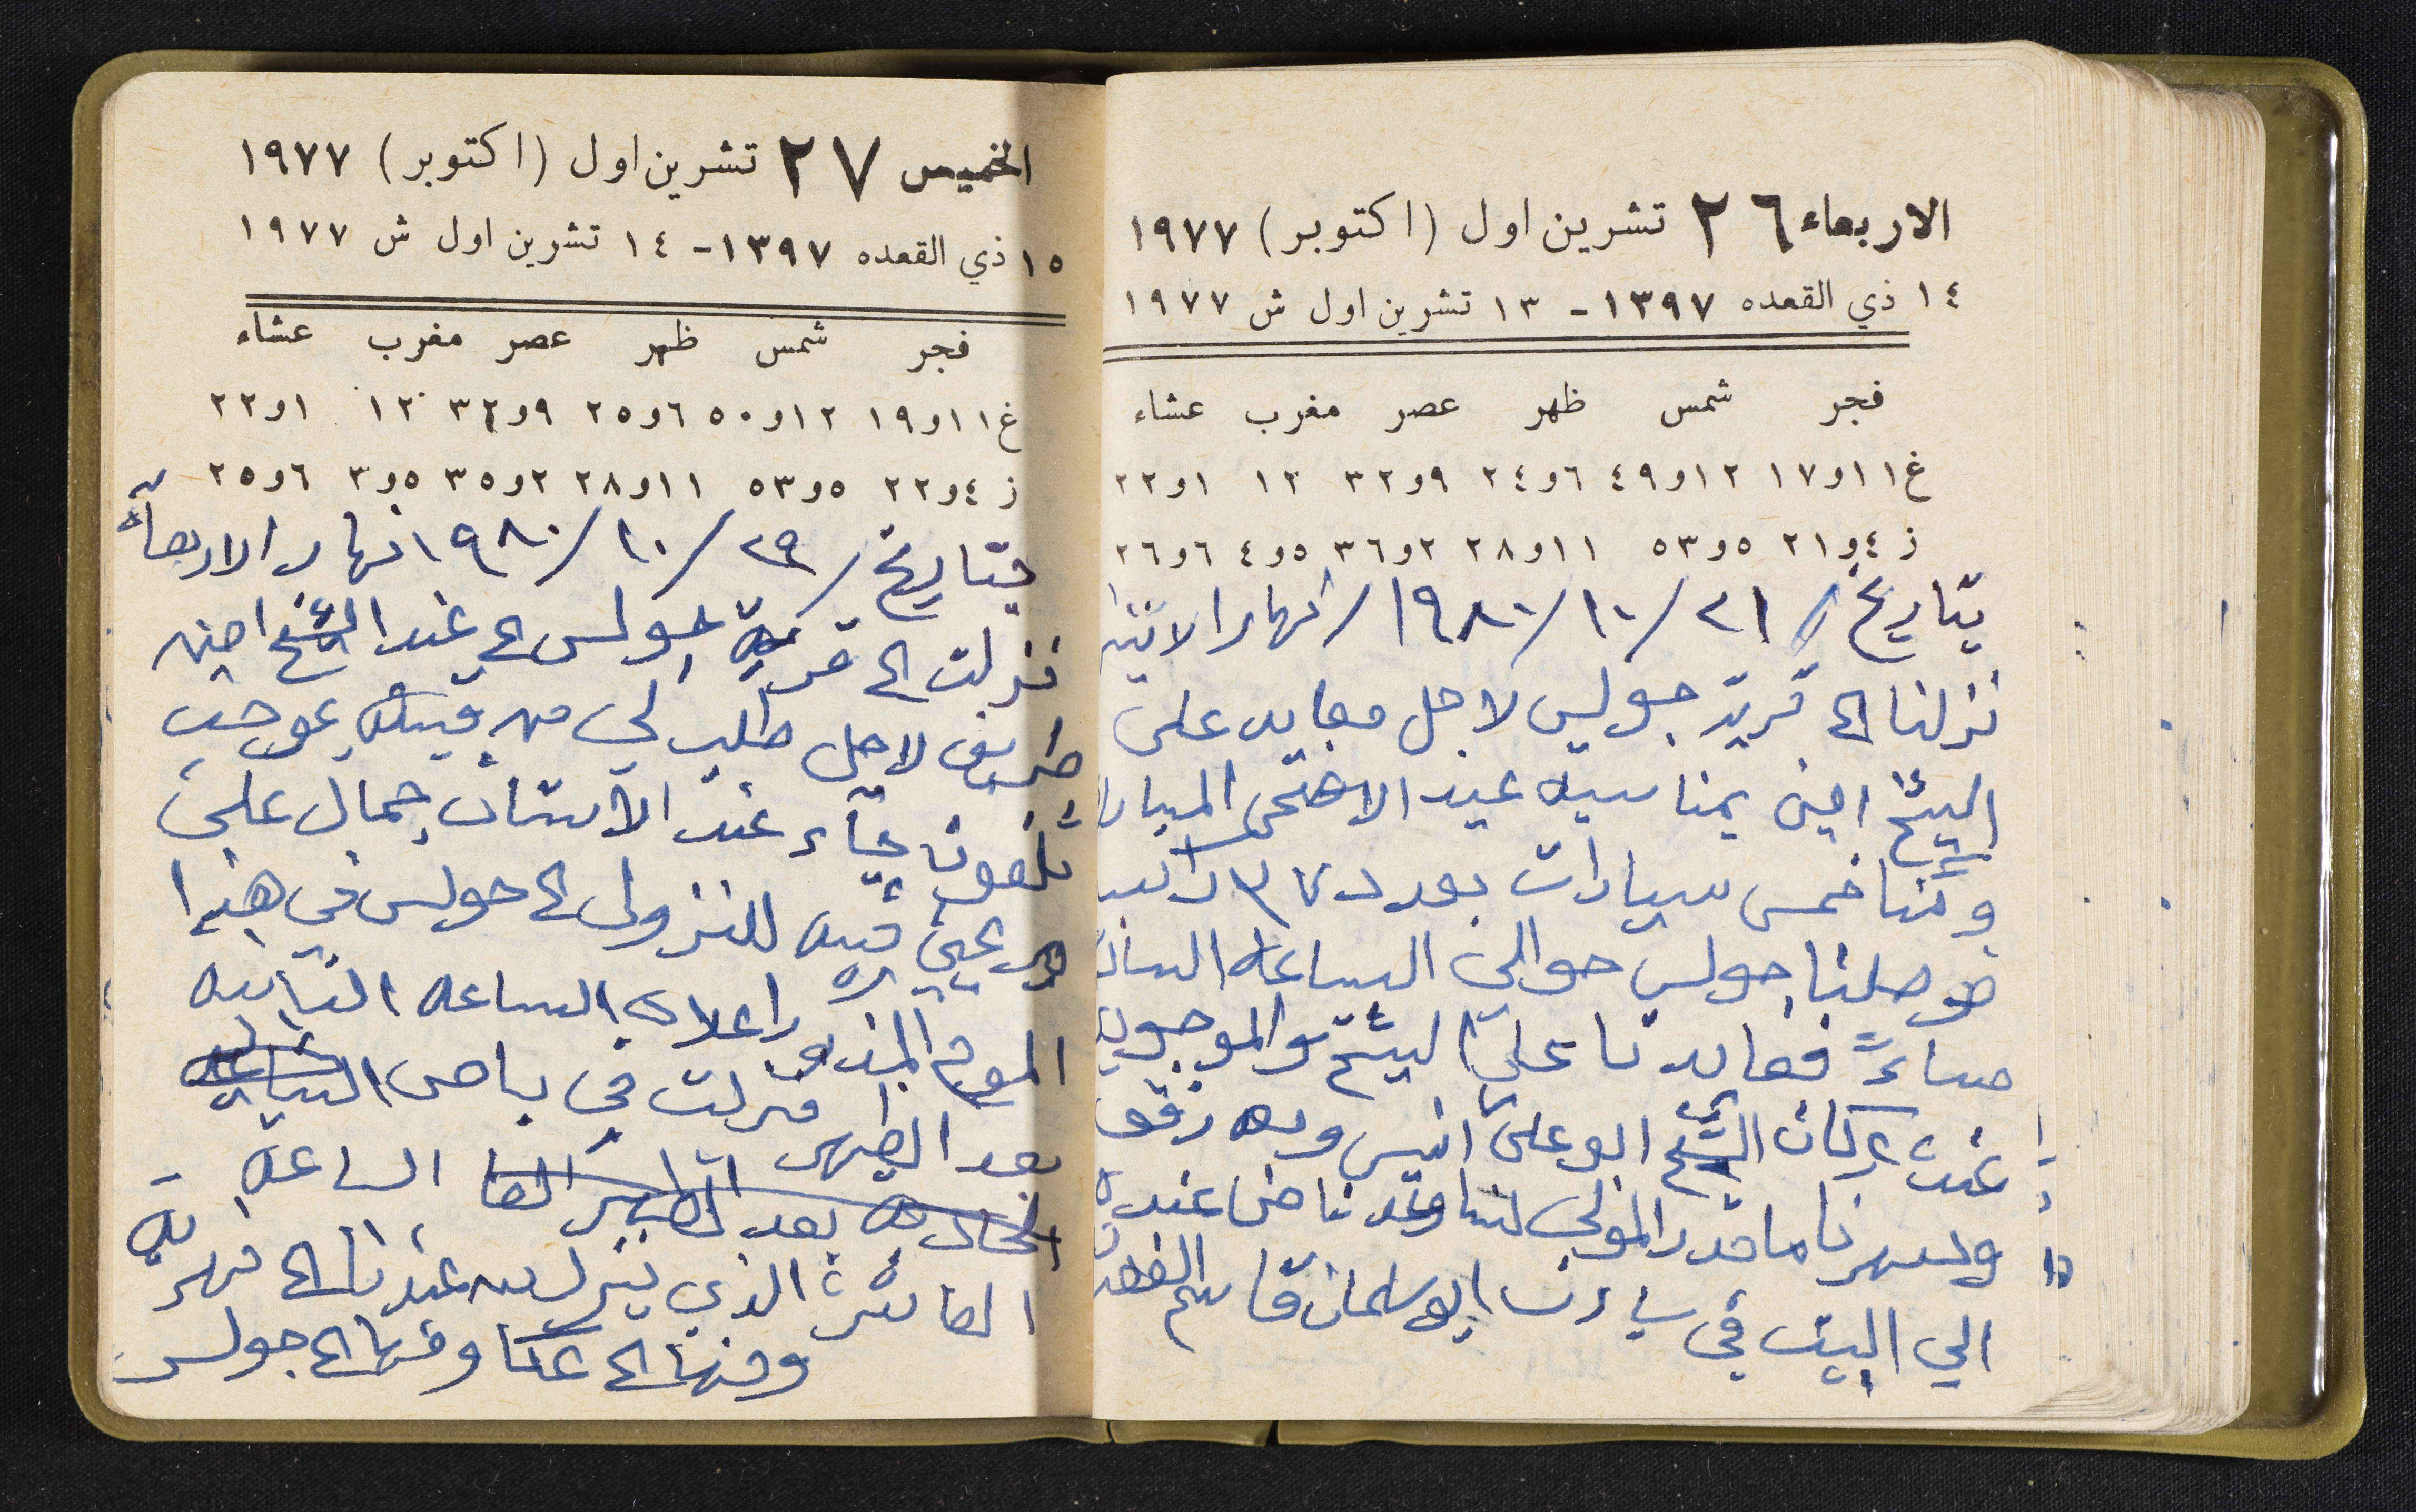 الاربعاء ٢٦ تشرين اول (اكتوبر) ١٩٧٧
١٤ ذي القعده ١٣٩٧ - ١٣ تشرين اول ش ١٩٧٧
فجر شمس ظهر عصر مغرب عشاء
غ ١١و١٧ ١٢و٤٩ ٦و٢٤ ٩و٣٢ ١٢ ١و٢٢
ز ٤و٢١ ٥و٥٣ ١١و٢٨ ٢و٣٦ ٥و٤ ٦و٢٦
بتاريخ / ٢١/ ١٠/ ١٩٨٠/ نهار الاثنين
نزلنا الى قرية جولس لاجل معايده على
الشيخ امين بمناسبه عيد الاضحى المبارك
وكنا خمس سيارات بعدد ٣٧ راكب
فوصلنا جولس حوالي الساعه السادسه
مساءً فعايدنا على الشيخ والموجودين
عنده وكان الشيخ ابو علي انيس
وسهرنا ما قدر المولى لنا وعدنا من عنده
الى البيت في سيارة ابو سلمان قاسم
الخميس ٢٧ تشرين اول (اكتوبر) ١٩٧٧
١٥ ذي القعده ١٣٩٧ - ١٤ تشرين اول ش ١٩٧٧
فجر شمس ظهر عصر مغرب عشاء
غ ١١و١٩ ١٢و٥٠ ٦و٢٥ ٩و٣٢ ١٢ ١و٢٢
ز ٤و٢٢ ٥و٥٣ ١١و٢٨ ٢و٣٥ ٥و٣ ٦و٢٥
بتاريخ / ٢٩/ ١٠/ ١٩٨٠ نهار الاربعاء
نزلت الى قرية جولس الى عند الشيخ امين
طريف لاجل طلب لي من قبله بموجب
تلفون جاء عند الاستاذ جمال علي
للنزول الى جولس في هذا
اليوم المذكور اعلاه الساعه الثانيه
بعد الظهر نزلت في باص
الحاديه بعد الظهر الساعه
العاشرة الذي ينزل من عندنا الى نهريه
ومنها الى عكا ومنها الى جولس